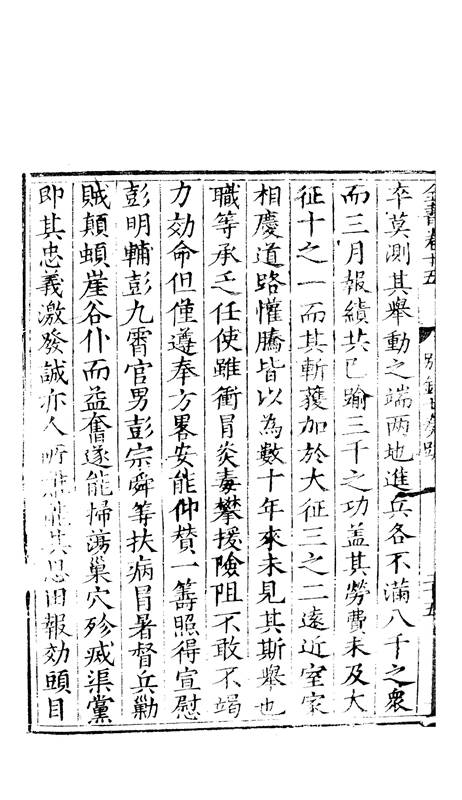 全書卷十五
卒莫測其舉動之端两地進兵各不滿八千之衆
而三月報績共已踰三千之功盖其勞費未及大
征十之一而其斬獲加於大征三之二遠近室家
相慶道路懽騰皆以為數十年來未見其斯舉也
職等承乏任使雖衝冒炎毒攀援險阻不敢不竭
力効命但僅遵奉方畧安能仰賛一籌照得宣慰
彭明輔彭九霄官男彭宗舜等扶病冒暑督兵勦
賊顛頓崖谷仆而益奮遂能掃蕩巢穴殄滅渠黨
即其忠義激發誠亦人所難能其思田報効頭目